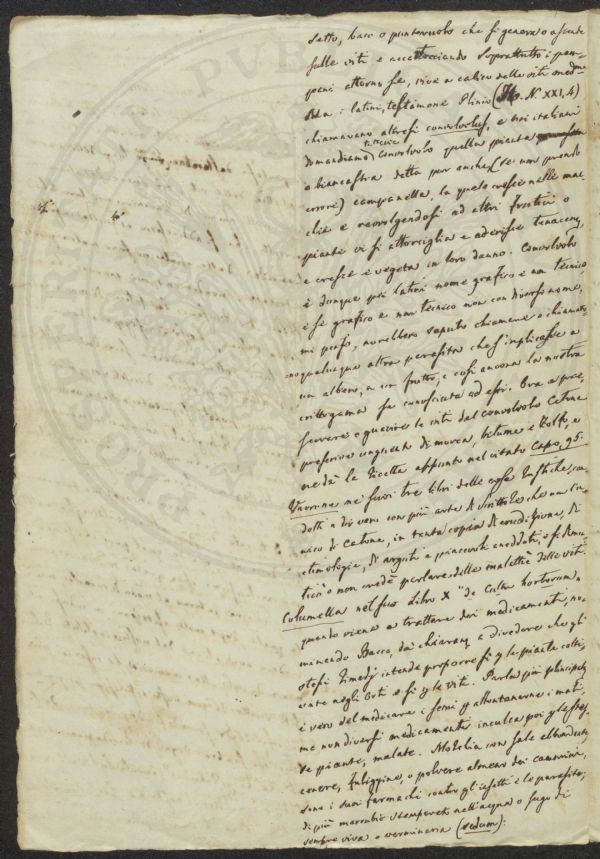 setto, baco o punteruolo che si genera o ascende
sulle viti e accartocciando soprattutto i pam-
pani attorno se, vive a carico delle viti medme
Ma i latini, testimone Plinio (N. XXI, 4)
chiamavano altresì convolvolus, e noi italiani
domandiamo tuttavia convolvolo quella pianta
o biancastra detta pur anche (se non prendo
errore) campanella, la quale cresce nelle mac
chie e ravvolgendosi ad altri frutici o
piante vi si attorciglia e aderisce tenacem.
e cresce e vegeta in loro danno. Convolvolo
è dunque pei latini nome grafico e non tecnico
e se grafico e non tecnico non con diverso nome,
mi penso, avrebbero saputo chiamare o chiamato
no qualunque altra parasita che s'implicasse a
un albero, a un frutice, e così ancora la nostra
crittogama se conosciuta ad essi. Ora a pre
servare o guarire le viti dal convolvolo Catone
prescrive unguento di morca, bitume e zolfo, e
ne dà la ricetta appunto nel citato Capo, 95.
Varrone nei suoi tre libri delle cose rustiche, con
dotti a dir vero con più arte di scrittore che non l'u
nico di Catone, in tanta copia di erudizione, di
etimologie, di arguti e piacevoli aneddoti
non credè parlare delle malattie delle viti.
Columella nel suo Libro X "de Cultu hortorum"
quando viene a trattare dei medicamenti, no-
minando Bacco, dà chiaram. a divedere che gli
stessi rimedj intende proporre sì p. le piante colti-
vate negli orti e sì p. le viti. Parla più principalm.
è vero del medicare i semi p. allontanarne i mali,
ma non diversi medicamenti inculca poi p. le stes-
se piante, malate. Morchia con sale abbondante
cenere, fuliggine, o polvere almeno dei cammini,
sono i suoi farmachi contro gl'insetti e le parasite;
di più marrubio stemperato nell'acqua o sugo di
sempre viva o vermicolaria (sedum):